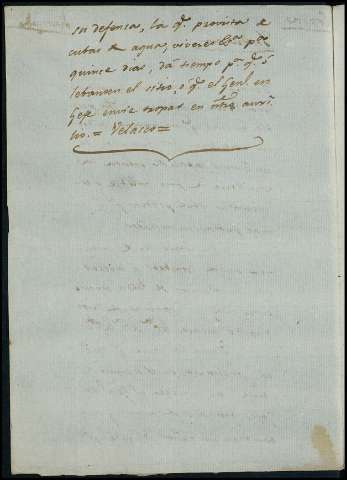 su defensa, la q.e provista de
cubas de agua, viveres &.a p.a
quince dias, dá tiempo p.a q.e ó
lebanten el sitio, ó q.e el Gen.l en
Gefe envie tropas en n.tro auxi-
lio. = Velasco =